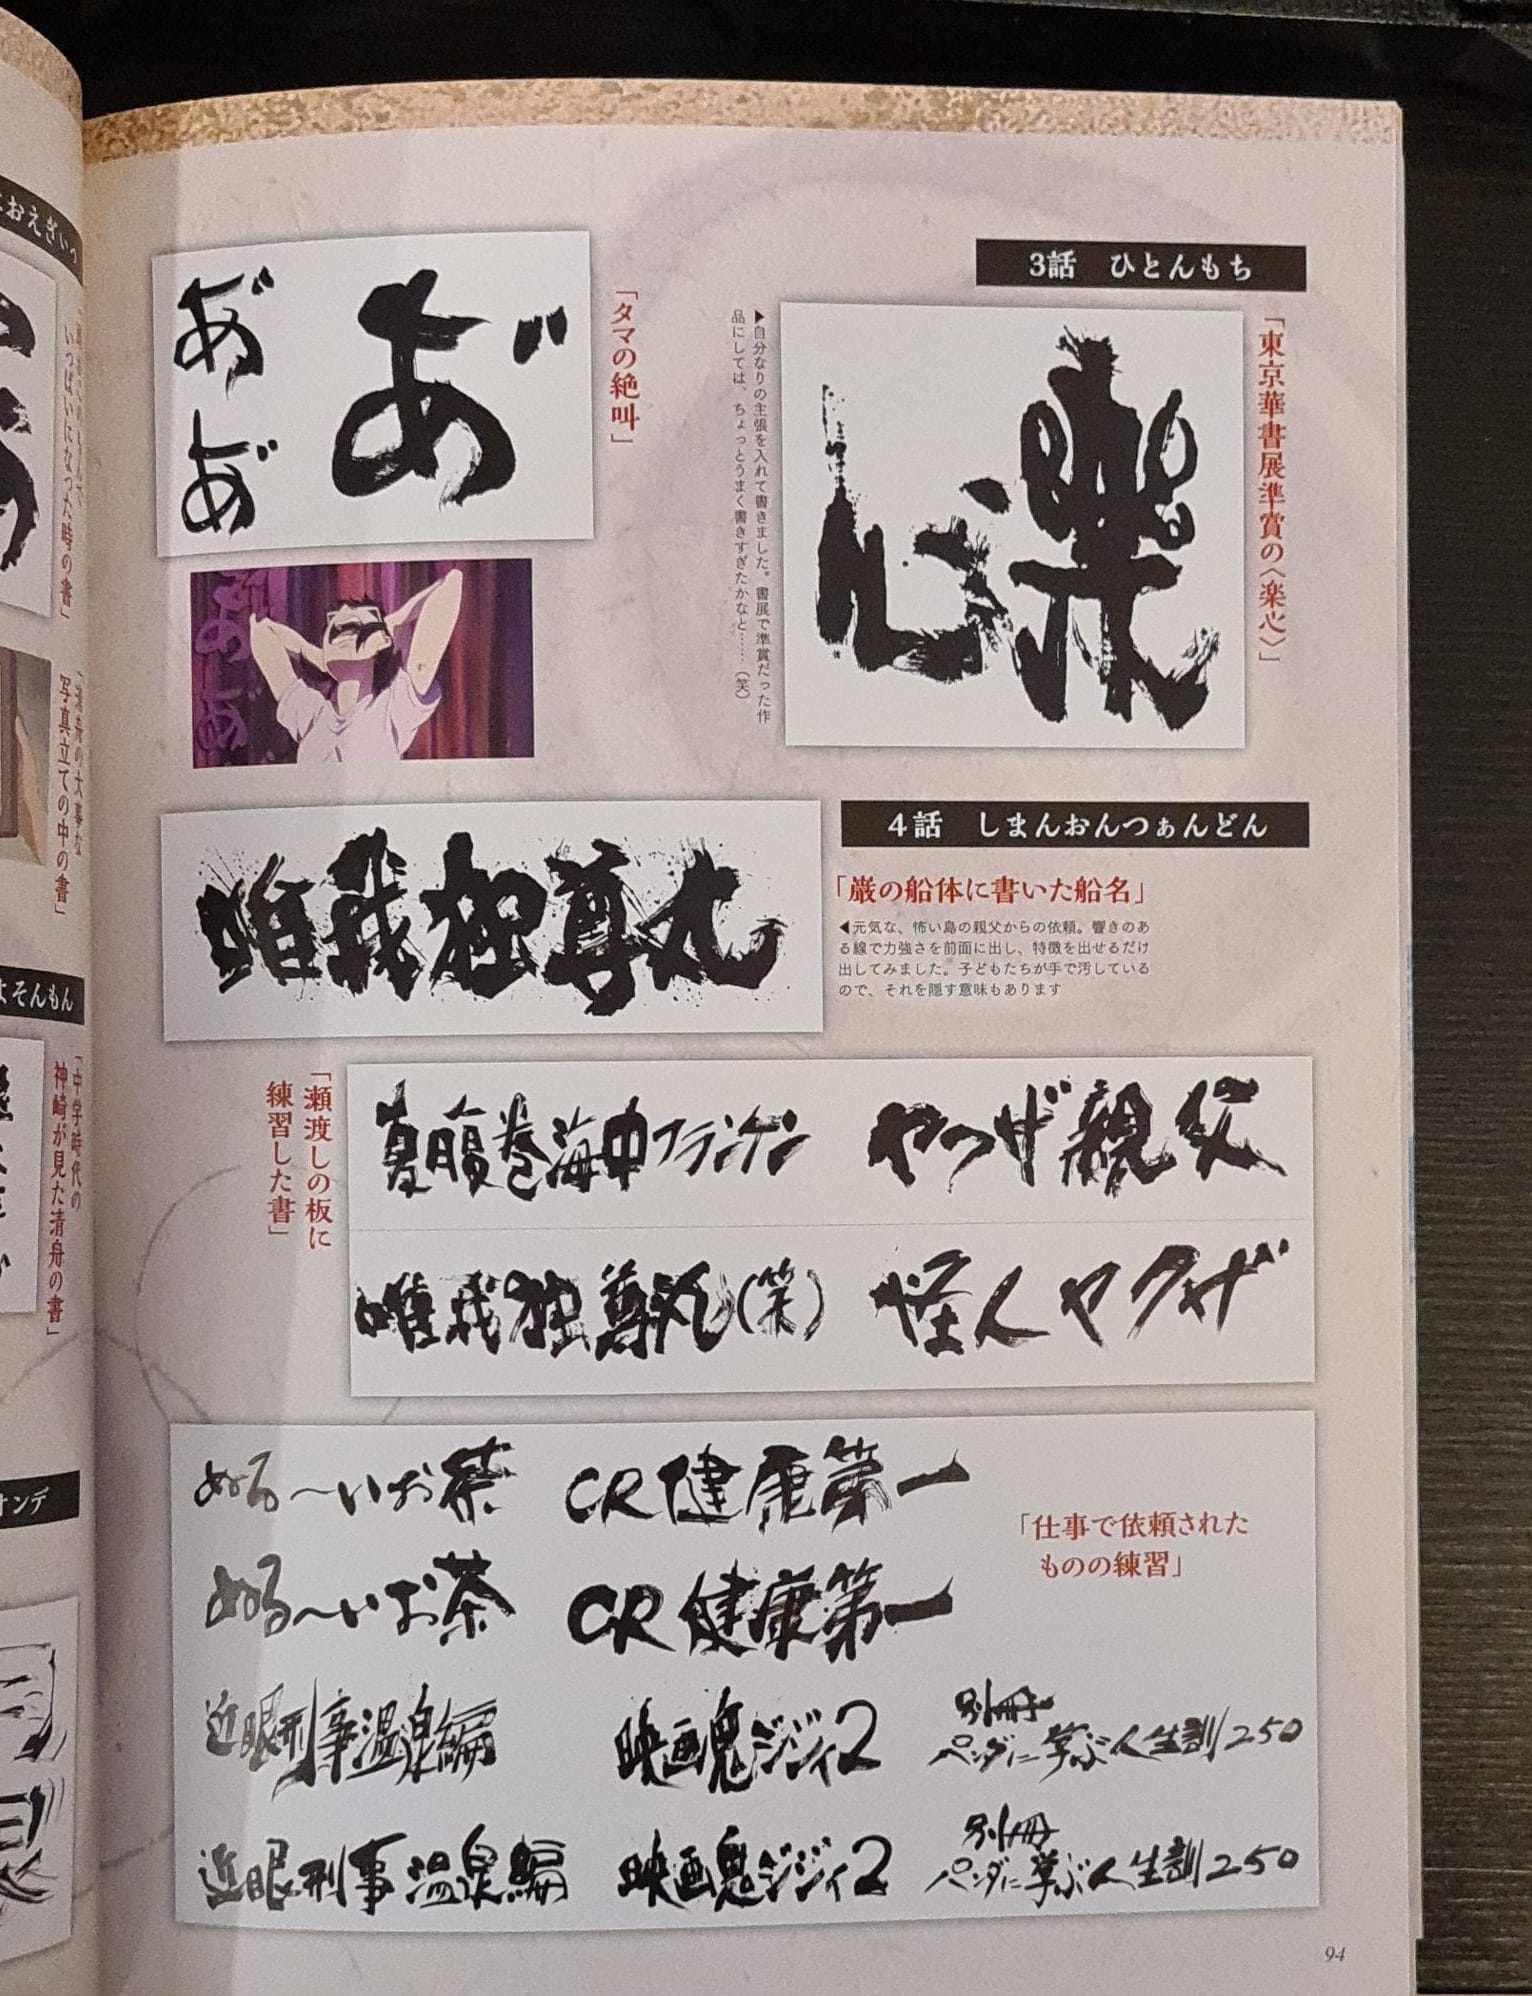 3話　ひとんもち
「東京華書展準賞の〈楽心〉」
楽心
▶自分なりの主張を入れて書きました。書展で準賞だった作
品にしては、ちょっとうまく書きすぎたかなと……（笑）
「タマの絶叫」
あ゛
あ゛
あ゛
4話　しまんおんつぁんどん
「巌の船体に書いた船名」
◀元気な、怖い島の親父からの依頼。響きのあ
る線で力強さを前面に出し、特徴を出せるだけ
出してみました。子どもたちが手で汚している
ので、それを隠す意味もあります
唯我独尊丸
「瀬渡しの板に
練習した書」
やつざ親父
夏腹巻海中フランケン
怪人ヤクザ
唯我独尊丸（笑）
「仕事で依頼された
ものの練習」
ぬる〜いお茶
CR健康第一
ぬる〜いお茶
CR健康第一
近眼刑事温泉編
映画鬼ジジイ2
別冊
ペンダに学ぶ人生訓250
近眼刑事温泉編
映画鬼ジジイ2
別冊
ペンダに学ぶ人生訓250
94
おえぎいっ
いっぱいになった時の書」
「清舟の大事な
写真立ての中の書」
よそんもん
「中学時代の
神崎が見た清舟の書」
ンデ